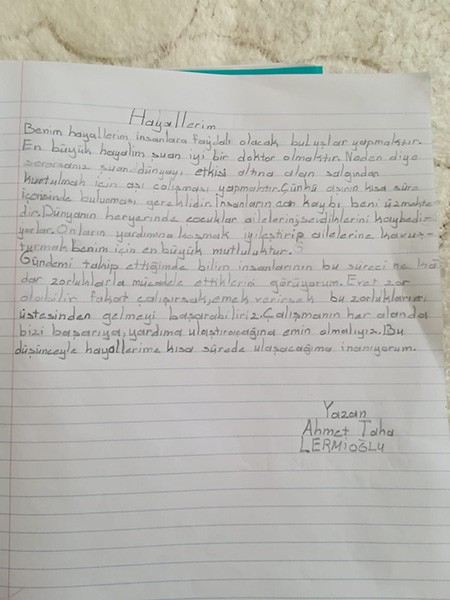 Hayallerim
Benim hayallerim insanlara faydalı olacak buluşlar yapmaktır.
En büyük hayalim şuan iyi bir doktor olmaktır. Neden diye
sorarsanız şuan dünyayı etkisi altına alan salgından
kurtulmak için aşı çalışması yapmaktır. Çünkü aşının kısa süre
içerisinde bulunması gereklidir. İnsanların can kaybı beni üzmekte-
dir. Dünyanın heryerinde çocuklar ailelerini, sevdiklerini kaybedi-
yorlar. Onların yardımına koşmak iyileştirip ailelerine kavuş-
turmak benim için en büyük mutluluktur.
Gündemi takip ettiğimde bilim insanlarının bu süreci ne ka-
dar zorluklarla mücadele ettiklerini görüyorum. Evet zor
olabilir fakat çalışırsak, emek verirsek bu zorlukların
üstesinden gelmeyi başarabiliriz. Çalışmanın her alanda
bizi başarıya, yardıma ulaştıracağına emin olmalıyız. Bu
düşünceyle hayallerime kısa sürede ulaşacağıma inanıyorum.
Yazan
Ahmet Taha
LERMİOĞLU